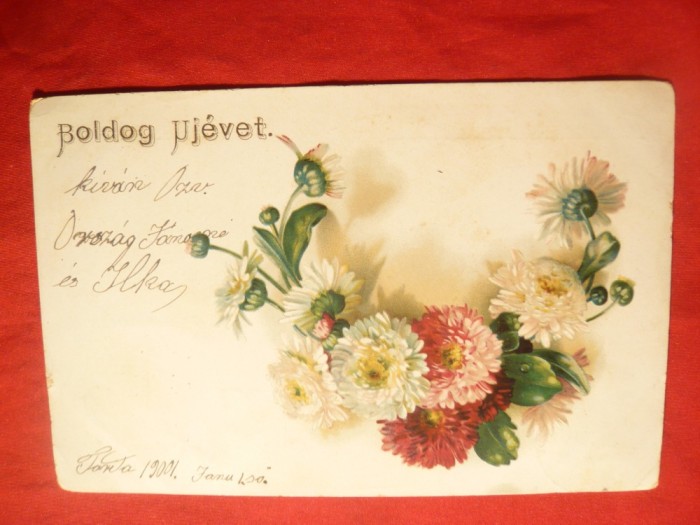 Boldog Ujévet.
kíván Özv.
Ország Jánosné
és Ilka
1901. Janu 1.só.